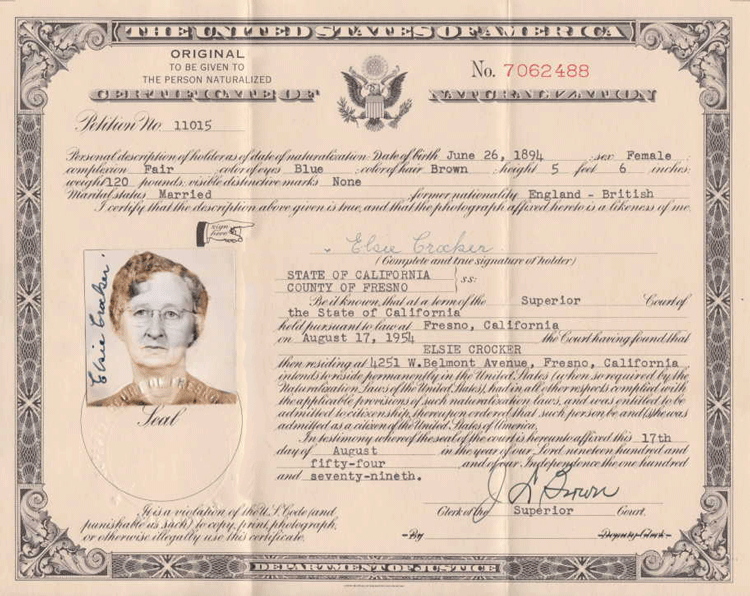 THE UNITED STATES OF AMERICA
ORIGINAL
TO BE GIVEN TO
THE PERSON NATURALIZED
No. 7062488
CERTIFICATE OF NATURALIZATION
Petition No 11015
Personal description of holder as of date of naturalization: Date of birth June 26, 1894 sex Female
complexion Fair color of eyes Blue color of hair Brown height 5 feet 6 inches
weight 120 pounds, visible distinctive marks None
Marital status Married former nationality England - British
I certify that the description above given is true, and that the photograph affixed hereto is a likeness of me.
sign here
Elsie Crocker
(Complete and true signature of holder)
Elsie Crocker
Seal
STATE OF CALIFORNIA
COUNTY OF FRESNO
ss:
Be it known, that at a term of the Superior Court of
the State of California
held pursuant to law at Fresno, California
on August 17, 1954 the Court having found that
ELSIE CROCKER
then residing at 4251 W.Belmont Avenue, Fresno, California
intends to reside permanently in the United States (when so required by the
Naturalization Laws of the United States), had in all other respects complied with
the applicable provisions of such naturalization laws, and was entitled to be
admitted to citizenship, thereupon ordered that such person be and (s)he was
admitted as a citizen of the United States of America.
In testimony whereof the seal of the court is hereunto affixed this 17th
day of August in the year of our Lord nineteen hundred and
fifty-four and of our Independence the one hundred
and seventy-nineth.
J L Brown
Clerk of the Superior Court.
-By Deputy Clerk-
It is a violation of the U.S. Code (and
punishable as such) to copy, print, photograph,
or otherwise illegally use this certificate.
DEPARTMENT OF JUSTICE